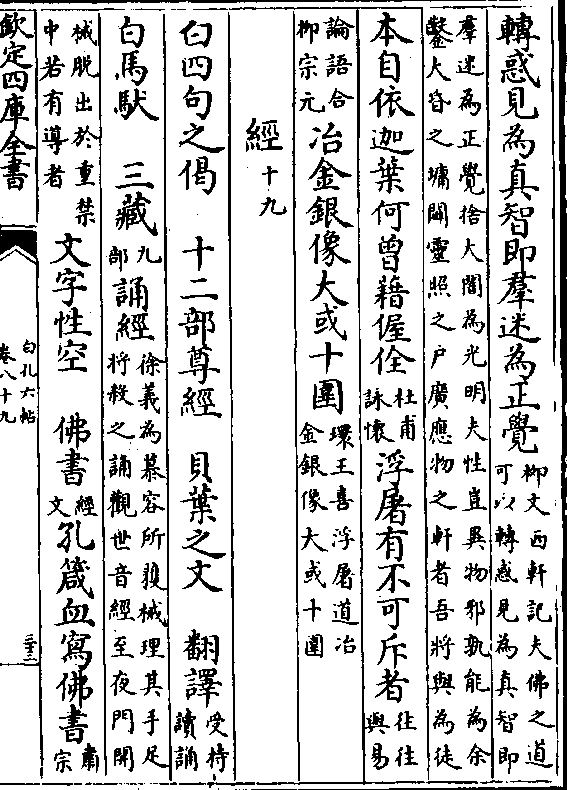 轉惑見為真智即羣迷為正覺柳文西軒記夫佛之道可以轉惑見為真智即
羣迷為正覺捨大闇為光明夫性豈異物邪孰能為余
鑿大昏之墉闢靈照之户廣應物之軒者吾將與為徒
本自依迦葉何曾藉偓佺杜甫詠懷浮屠有不可斥者往往與易
論語合柳宗元冶金銀像大或十圍環王喜浮屠道冶金銀像大或十圍
經十九
白四句之偈 十二部尊經 貝葉之文 翻譯受持讀誦
白馬馱 三藏九部誦經徐義為慕容所獲械理其手足將殺之誦觀世音經至夜門開
械脱出於重禁中若有導者文字性空 佛書經文孔箴血寫佛書肅宗
欽定四庫全書
白孔六帖
卷八十九